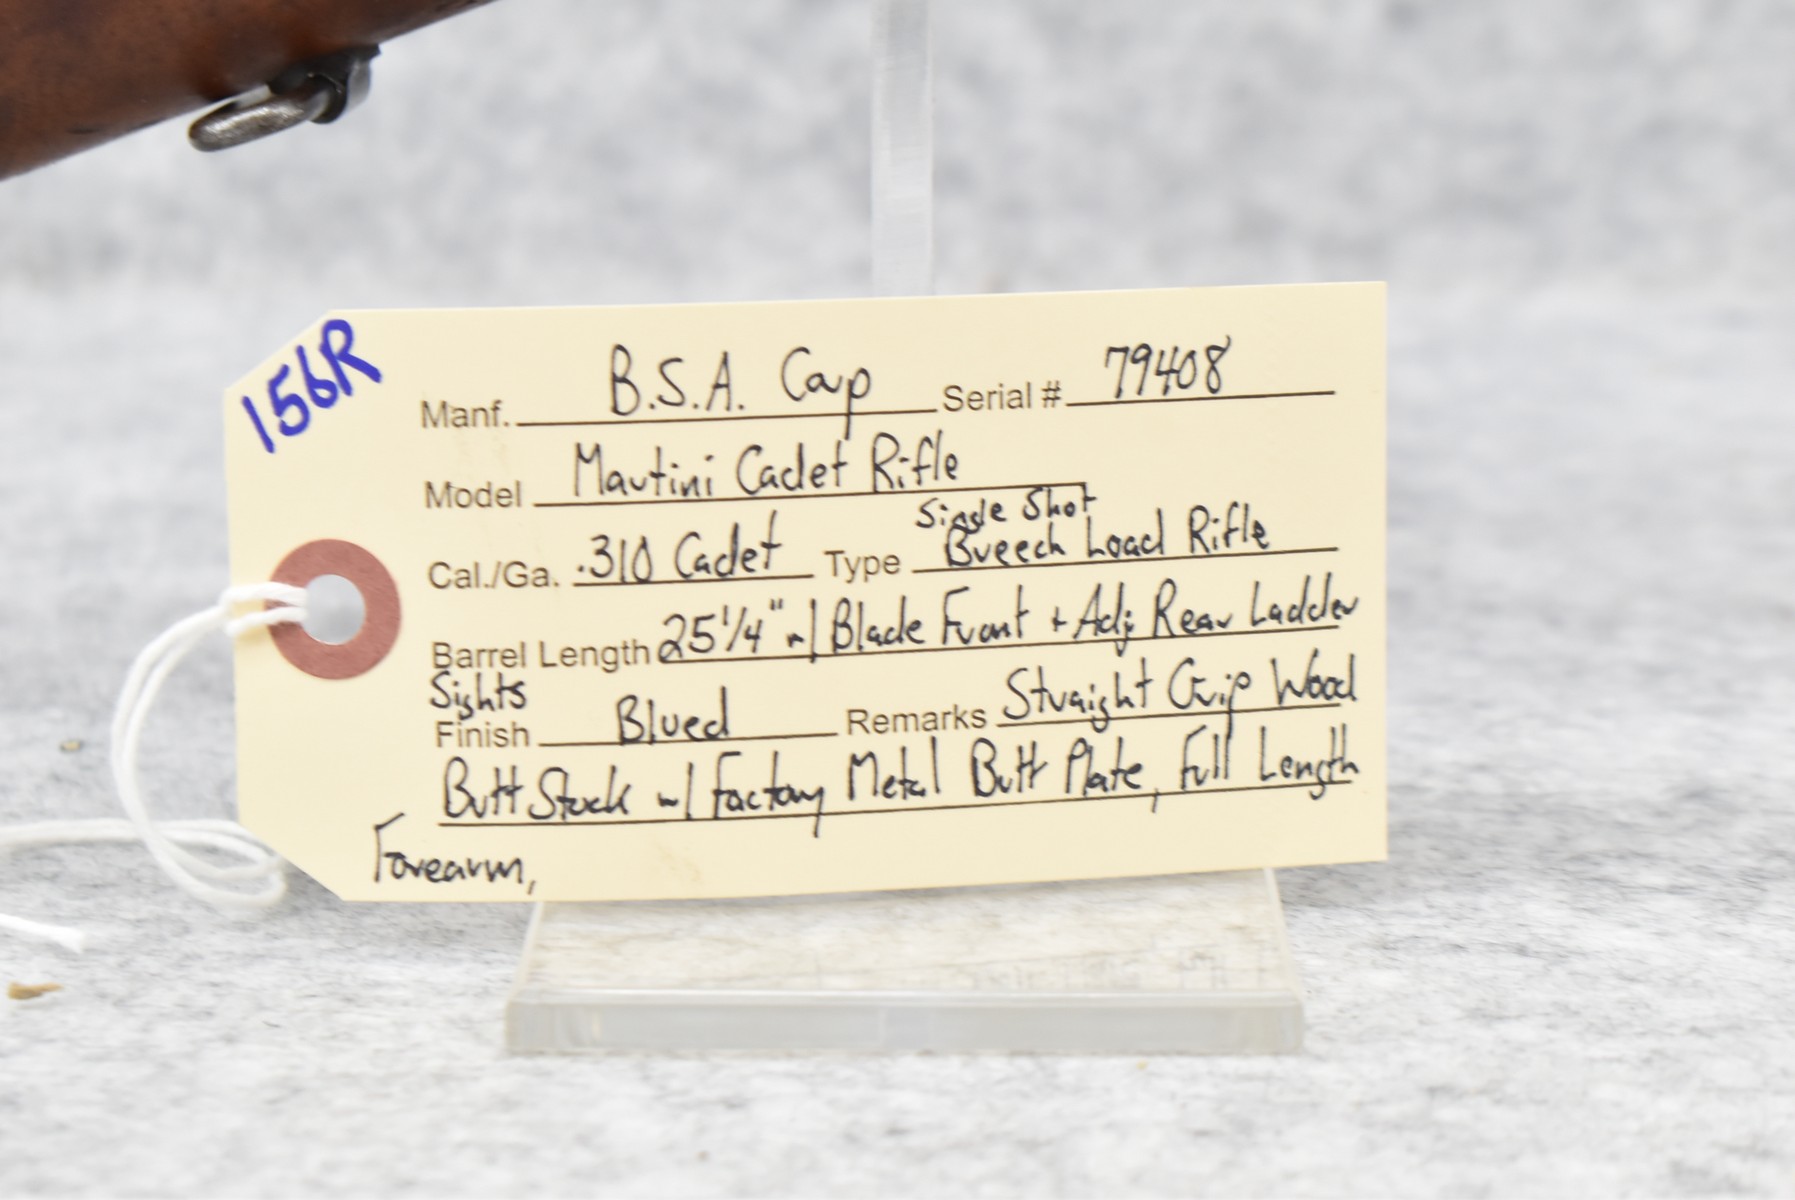 156R
Manf. B.S.A. Corp Serial # 79408
Model Martini Cadet Rifle
Single Shot
Cal./Ga. .310 Cadet Type Breech Load Rifle
Barrel Length 25 1/4" w/ Blade Front + Adj Rear Ladder
Sights
Finish Blued Remarks Straight Grip Wood
Butt Stock w/ Factory Metal Butt Plate, Full Length
Forearm,